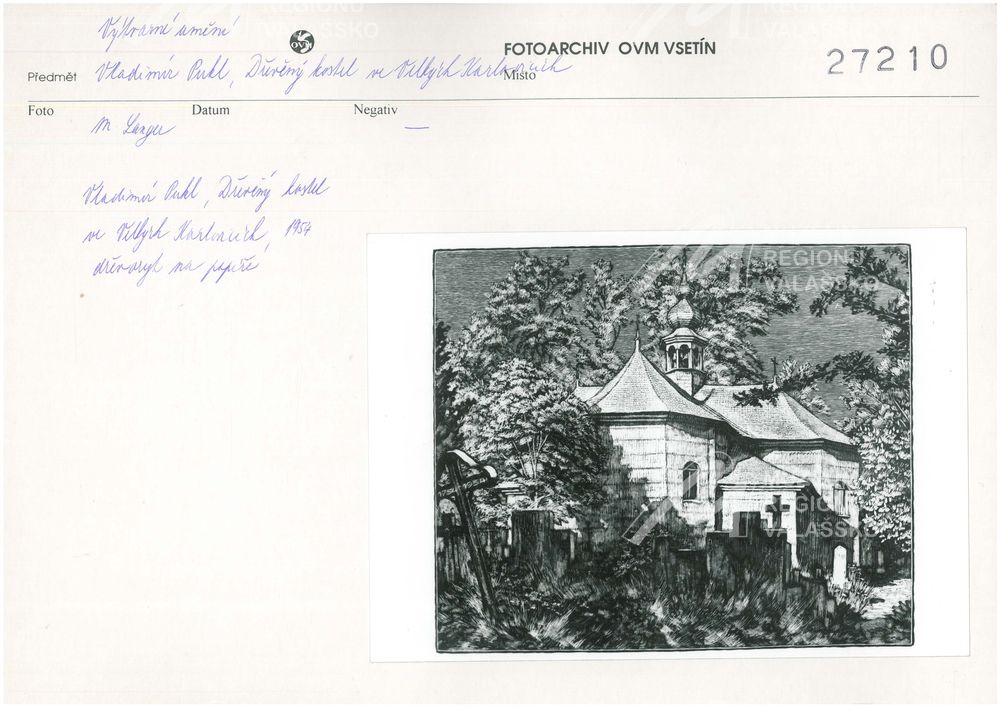 Výtvarné umění
OVM
FOTOARCHIV OVM VSETÍN
27210
Předmět Vladimír Pukl, Dřevěný kostel ve Velkých Karlovicích
Místo
Foto Datum Negativ
M Langer —
Vladimír Pukl, Dřevěný kostel
ve Velkých Karlovicích, 1954
dřevoryt na papíře
REGIONU
VALAŠSKO
REGIONU
VALAŠSKO
REGIONU
VALAŠSKO
REGIONU
VALAŠSKO